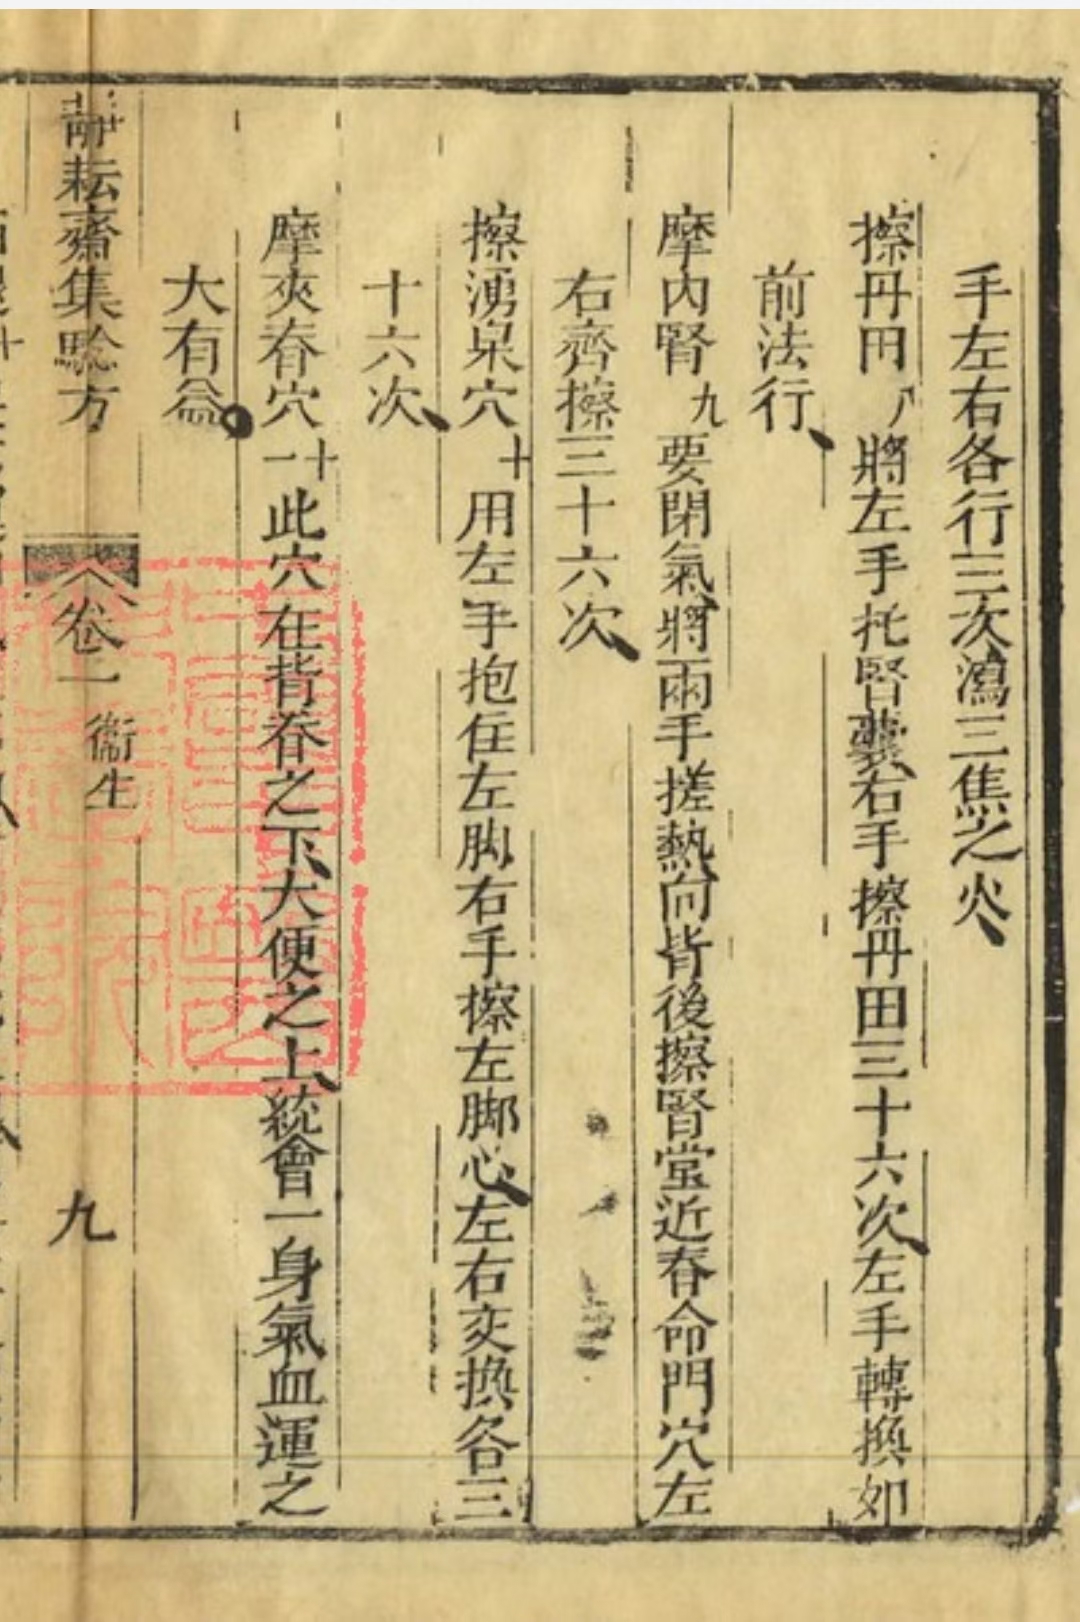 手左右各行三次瀉三焦之火
擦丹田八將左手托腎囊右手擦丹田三十六次左手轉換如
前法行
摩內腎九要閉氣將兩手搓熱向背後擦腎堂近脊命門穴左
右齊擦三十六次
擦湧泉穴十用左手抱住左脚右手擦左脚心左右交換各三
十六次
摩夾脊穴十一此穴在背脊之下大便之上統會一身氣血運之
大有益
靜耘齋集驗方 卷一 衞生 九